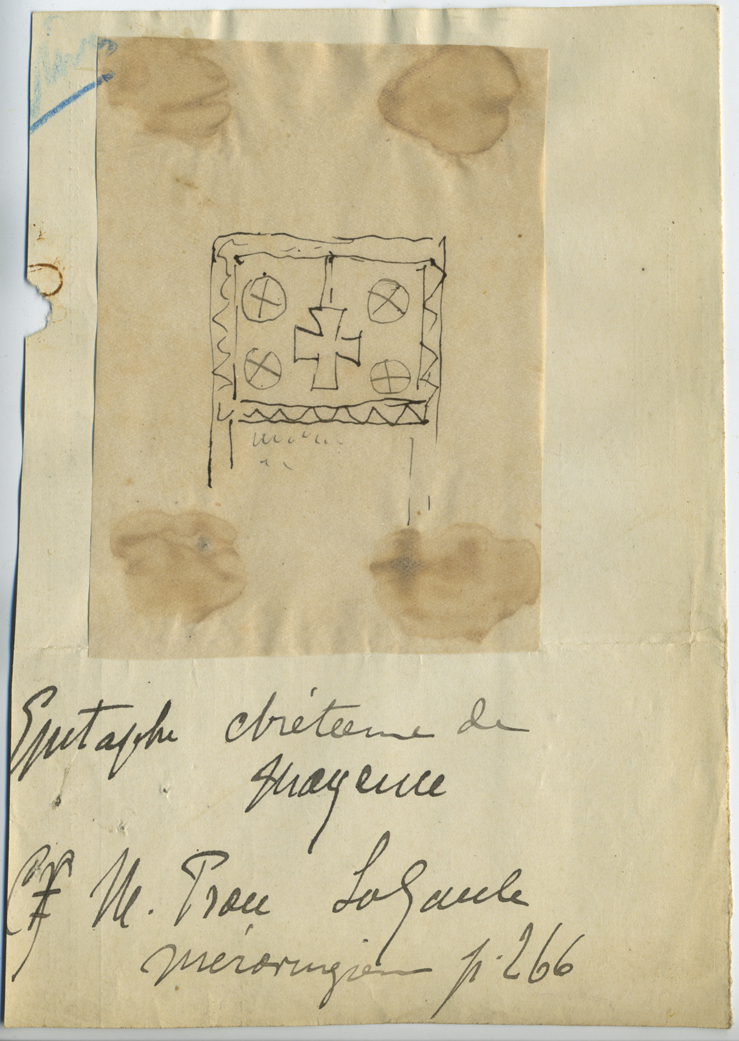 Epitaphe chrétienne de
Mayence
Cf M. Prou La Gaule
mérovingienne p. 266